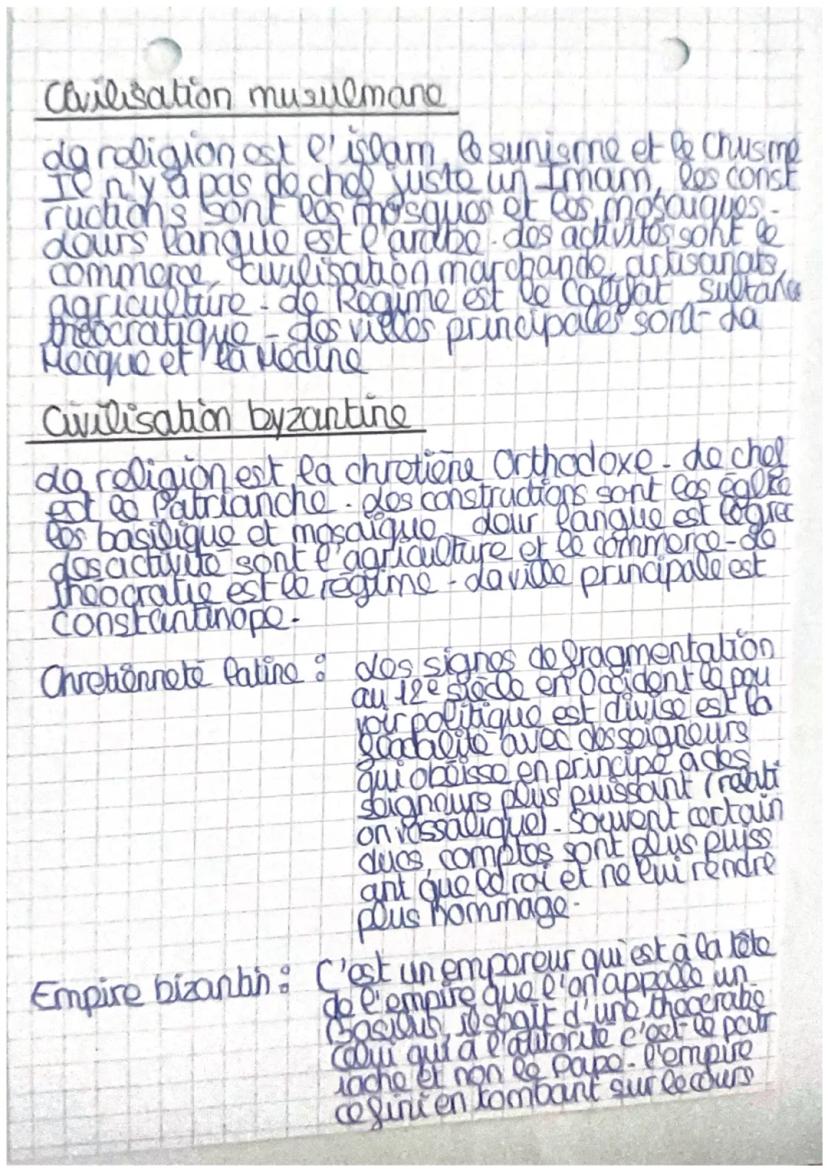 Civilisation musulmane
La religion est l'islam, le sunisme et le Chiisme
Il n'y a pas de chef juste un Imam, les const
ructions sont les mosques et les mosaiques-
Leurs langue est l'arabe. Les activités sont le
commerce, civilisation marchande, artisanats,
agriculture - Le Regime est le Califat sultana
théocratique - Les villes principales sont La
Mecque et La Médine
Civilisation byzantine
La religion est la chretiène Orthodoxe - Le chef
est le Patrianche. Les constructions sont les église
les basilique et mosaïque, Leur langue est le grec
Les activité sont l'agriculture et le commerce - La
théocratie est le regime - La ville principale est
Constantinope.
Chretiènneté latine : Les signes de fragmentation
au 12e siècle en Occident le pou
voir politique est divise est la
feodalité avec des seigneurs
qui obéisse en principe a des
seigneurs plus puissant (relati
on vassalique). Souvent certain
ducs, comptes sont plus puiss
ant que le roi et ne lui rendre
plus hommage.
Empire bizantin : C'est un empereur qui est à la tête
de l'empire que l'on appelle un
Basileus, il s'agit d'une théocratie
Celui qui a l'autorité c'est le patr
iache et non le Pape. l'empire
ce fini en tombant sur le cours